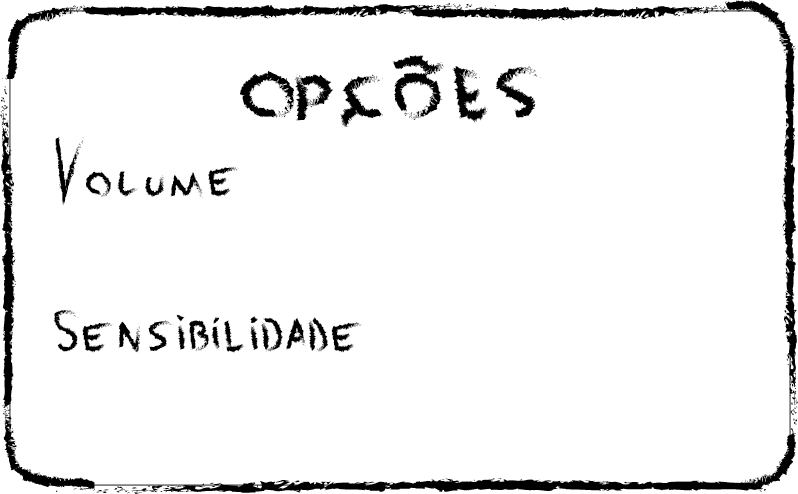 OPÇÕES
VOLUME
SENSIBILIDADE